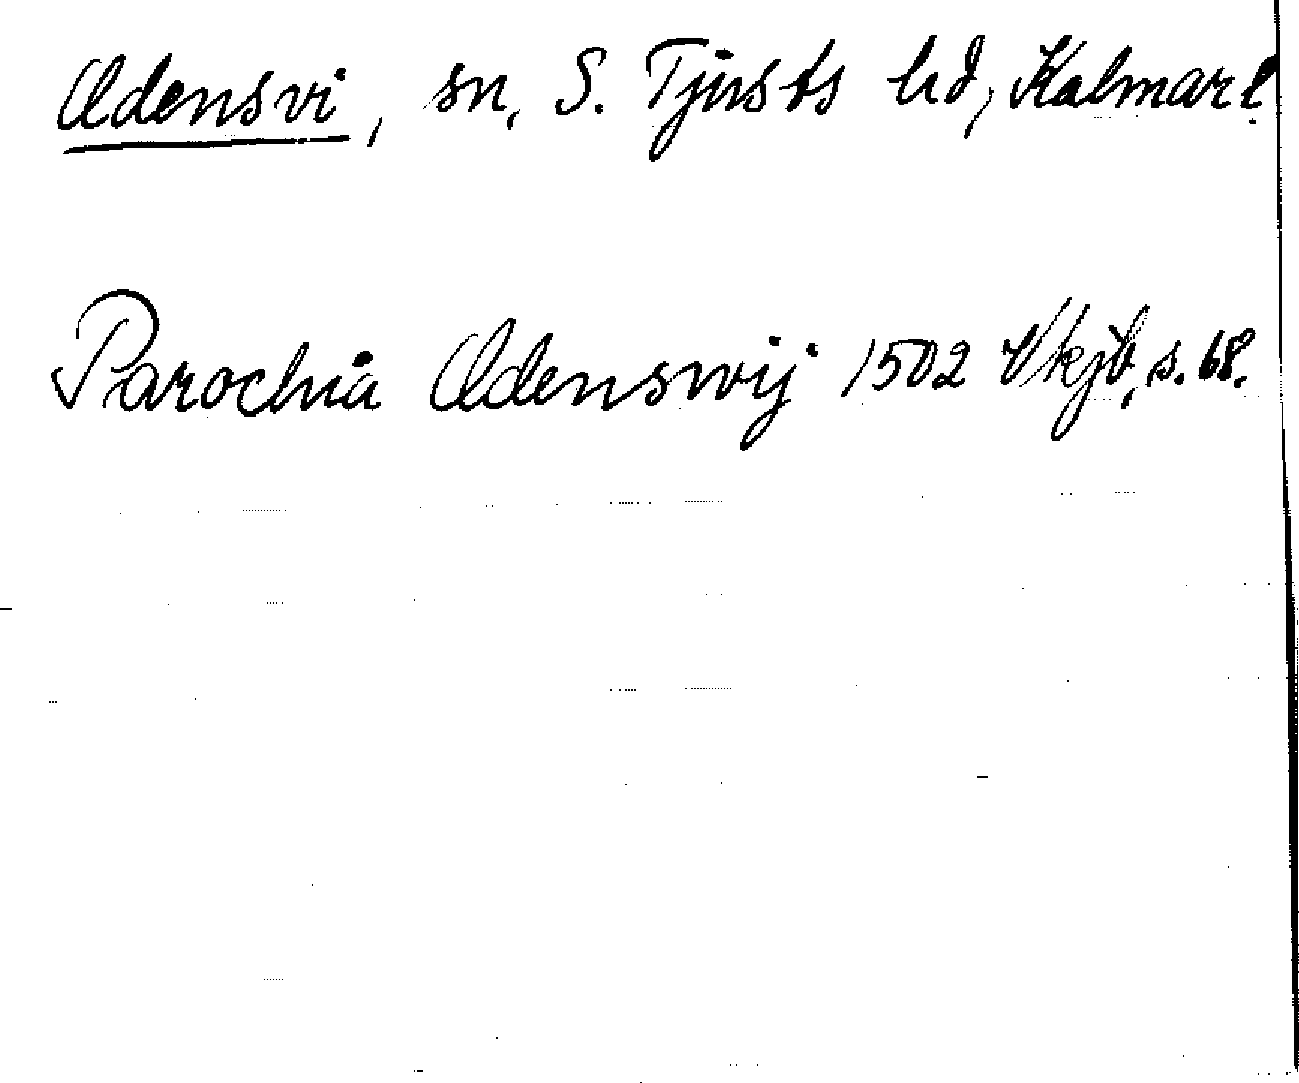 Odensvi, sn, S. Tjusts hd, Kalmar l.
Parochia Odenswij 1502 Vkjb, s. 68.